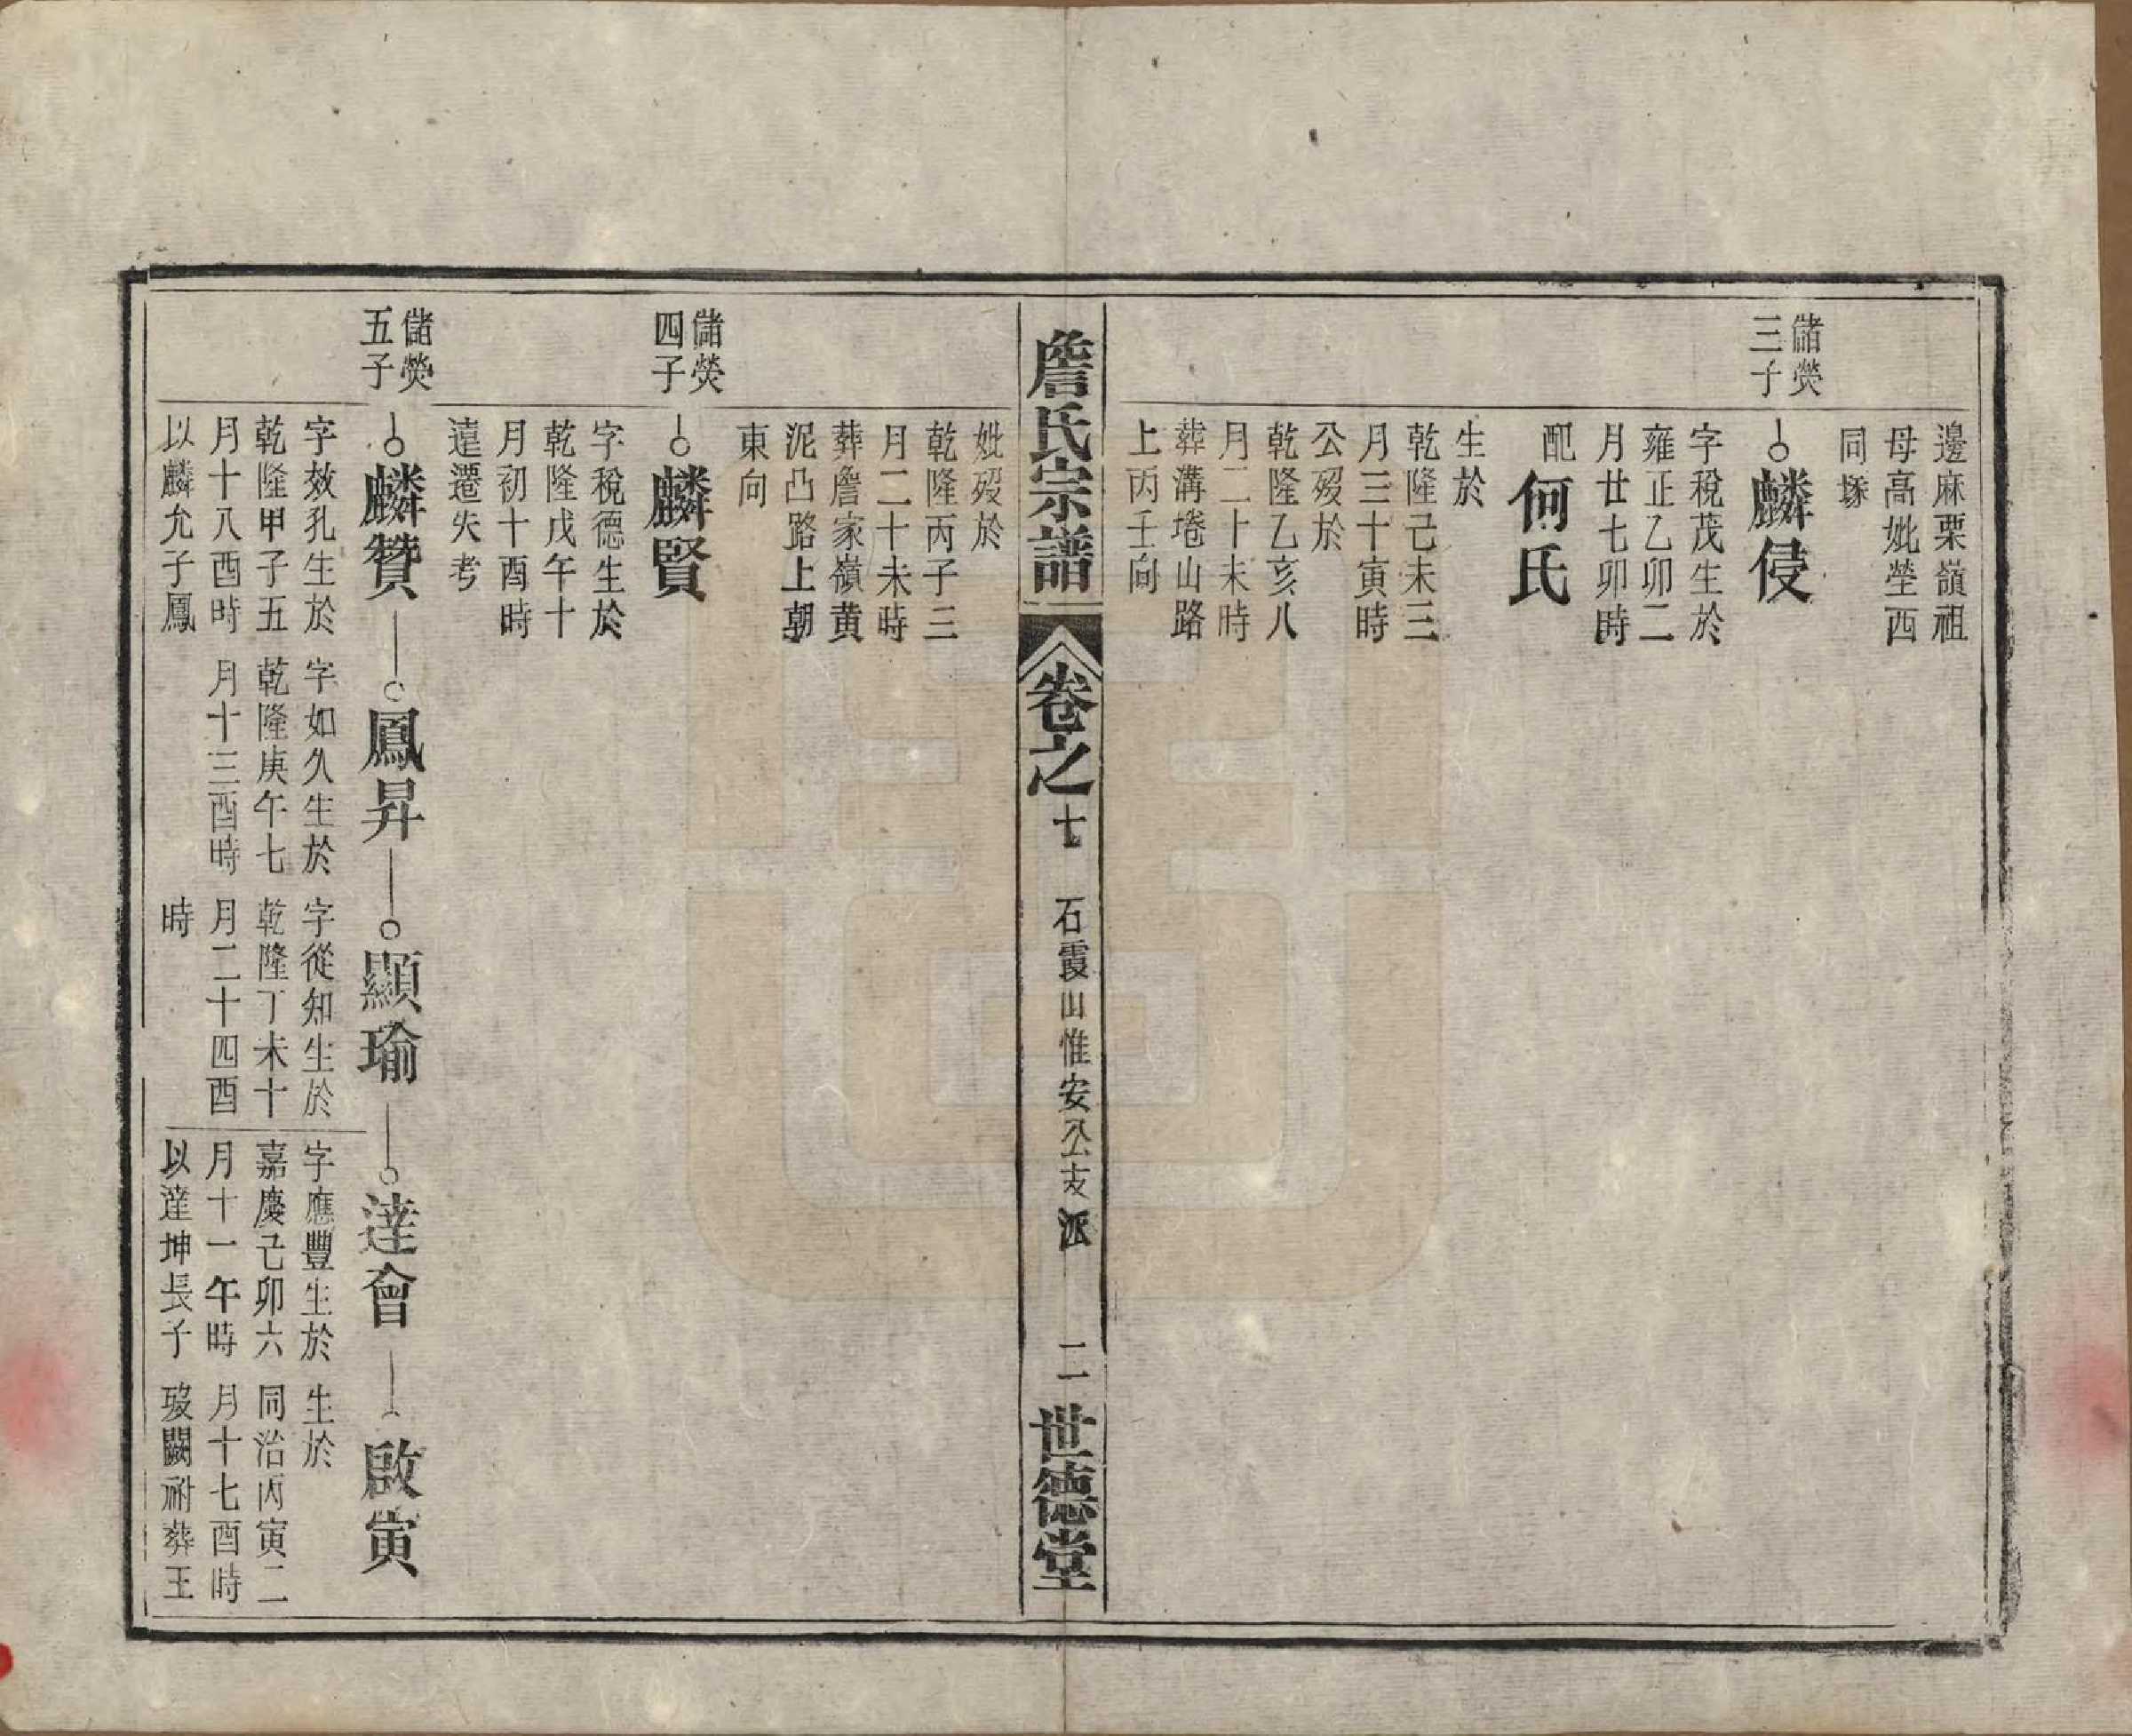 邊麻栗嶺祖
母高妣塋西
同塚
儲熒
三子
麟侵
字稅茂生於
雍正乙卯二
月廿七卯時
配
何氏
生於
乾隆己未三
月三十寅時
公歿於
乾隆乙亥八
月二十未時
葬溝埢山路
上丙壬向
詹氏宗譜
卷之
七
石霞山惟安公支派
二
世德堂
妣歿於
乾隆丙子三
月二十未時
葬詹家嶺黄
泥凸路上朝
東向
儲熒
四子
麟賢
字稅德生於
乾隆戊午十
月初十酉時
遠遷失考
儲熒
五子
麟贊
字效孔生於
乾隆甲子五
月十八酉時
以麟允子鳳
鳳昇
字如久生於
乾隆庚午七
月十三酉時
顯瑜
字從知生於
乾隆丁未十
月二十四酉
時
達會
字應豐生於
嘉慶己卯六
月十一午時
以達坤長子
啟寅
生於
同治丙寅二
月十七酉時
歿闕祔葬王